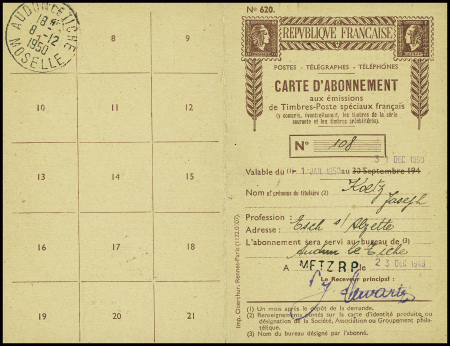 AUDUN-LE-TICHE
18
8-12
1950
MOSELLE
8
9
10
11
12
13
14
15
16
17
18
19
20
21
Imp. Chaix
N° 620.
REPVBLIQVE FRANÇAISE
POSTES - TÉLÉGRAPHES - TÉLÉPHONES
CARTE D'ABONNEMENT
aux émissions
de Timbres-Poste spéciaux français
(y compris, éventuellement, les timbres de la série
courante et les timbres préoblitérés).
N° 108
31 DEC 1950
Valable du 1er 1 JAN 1950 au 30 Septembre 194
Nom et prénoms du titulaire (2) Koetz
Joseph
Profession :
Adresse : Esch s/ Alzette
L'abonnement sera servi au bureau de (3)
Audun le Tiche
A METZ R.P. le 23 DEC 1949
Le Receveur principal :
(1) Un mois après le dépôt de la demande.
(2) Renseignements portés sur la carte d'identité produite ou
désignation de la Société, Association ou Groupement phila-
télique.
(3) Nom du bureau désigné par l'abonné.